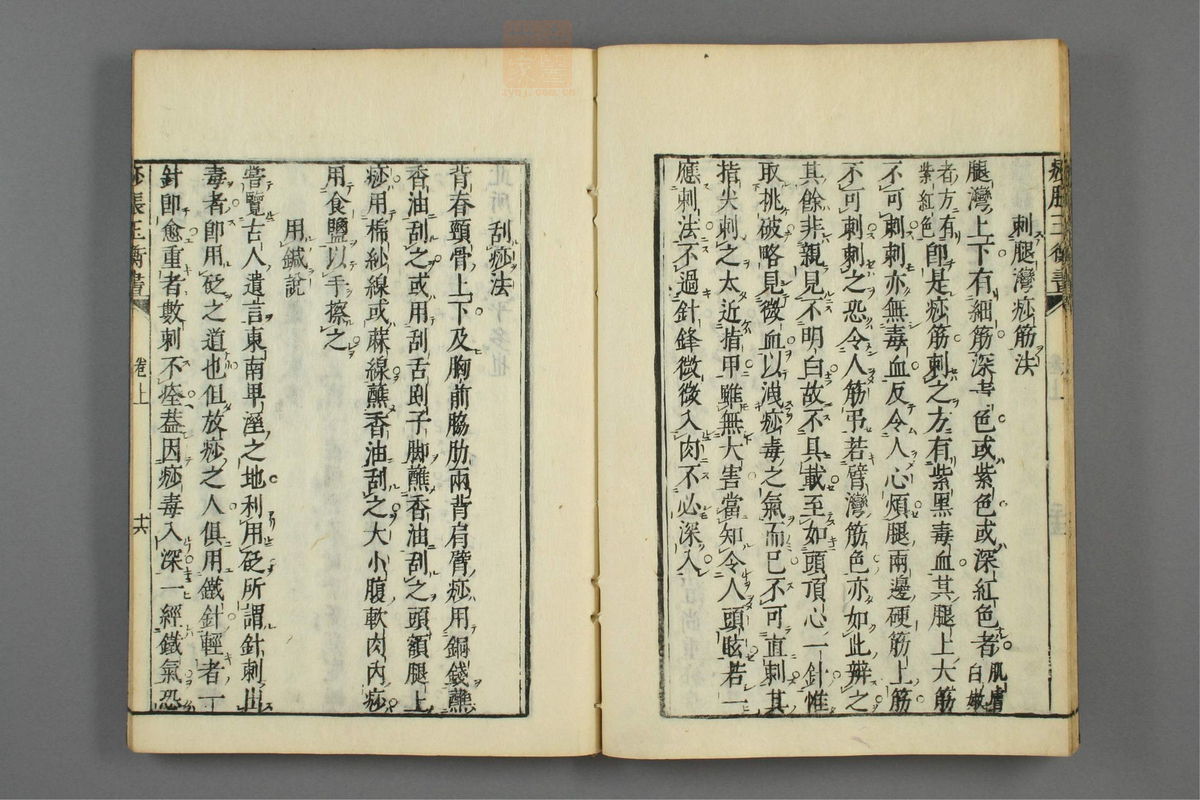 痧脹玉衡書
卷上
刺腿灣痧筋法
腿灣上下有細筋深青色或紫色或深紅色者肌膚白嫩
者方有紫紅色卽是痧筋刺之方有紫黑毒血其腿上大筋
不可刺刺亦無毒血反令人心煩腿兩邊硬筋上筋
不可刺刺之恐令人筋弔若臂灣筋色亦如此辨之
其餘非親見不明白故不具載至如頭頂心一針惟
取挑破略見微血以洩痧毒之氣而已不可直刺其
指尖刺之太近指甲雖無大害當知令人頭眩若一
應刺法不過針鋒微微入肉不必深入
刮痧法
背脊頸骨上下及胸前脇肋兩背肩臂痧用銅錢蘸
香油刮之或用刮舌刡子脚蘸香油刮之頭額腿上
痧用棉紗線或蔴線蘸香油刮之大小腹軟肉內痧
用食鹽以手擦之
用鍼說
嘗覽古人遺言東南卑溼之地利用砭所謂針刺出
毒者卽用砭之道也但放痧之人俱用鐵針輕者一
針卽愈重者數刺不痊葢因痧毒入深一經鐵氣恐
痧脹玉衡書
卷上
十六